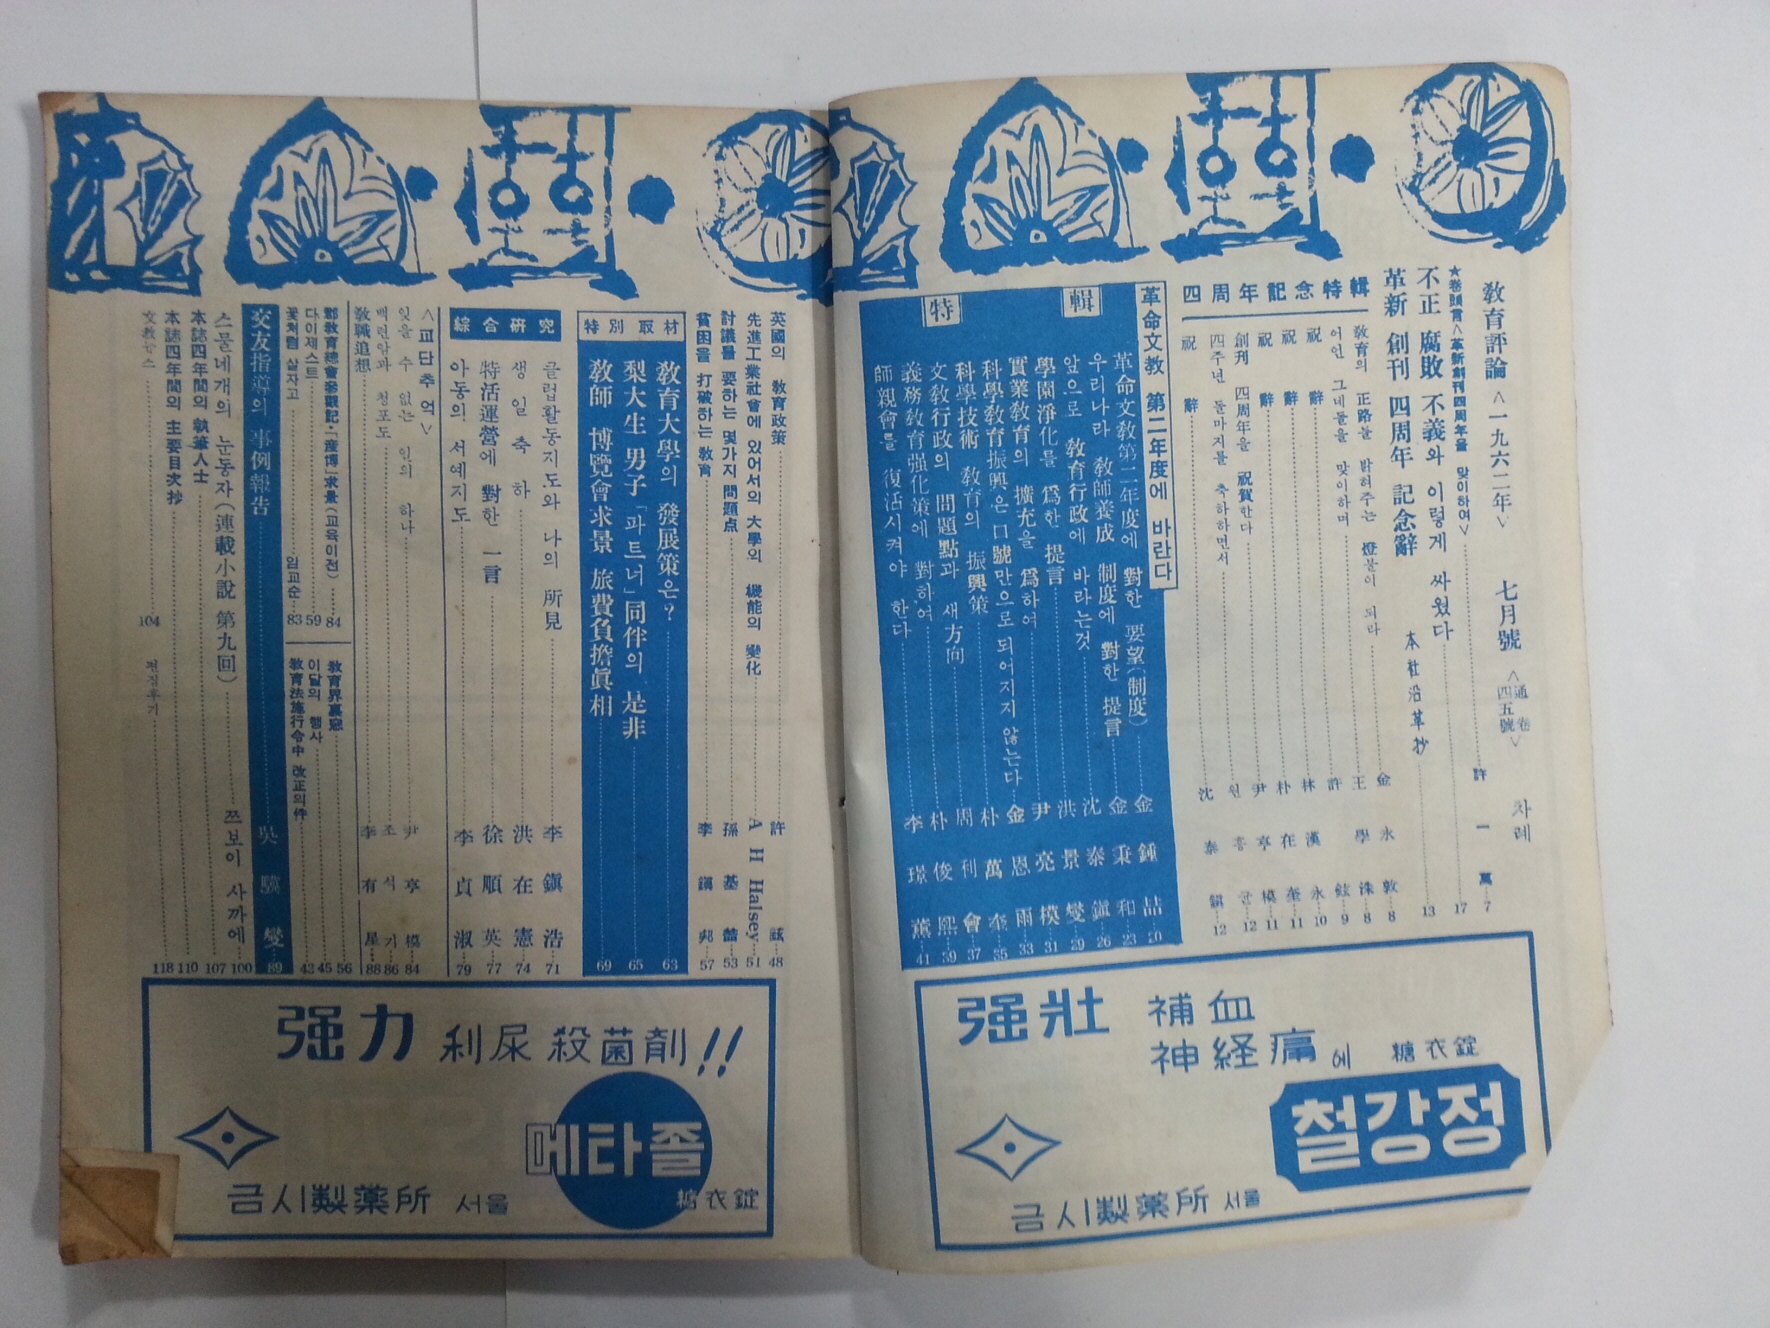 敎育評論 <一九六二年> 七月號 <通卷 四五號> 차례
★卷頭言<革新創刊四周年을 맞이하여> 許一萬 7
不正 腐敗 不義와 이렇게 싸웠다 17
革新 創刊 四周年 記念辭 本社沿革抄 13
四周年記念特輯
敎育의 正路를 밝혀주는 燈불이 되라 金永敦 8
어언 그네들을 맞이하며 王學洙 8
祝辭 許鉉 9
祝辭 林漢永 10
祝辭 朴在奎 11
創刊 四周年을 祝賀한다 尹亨模 11
四주년 돌마지를 축하하면서 원흥균 12
祝辭 沈泰鎭 12
革命文敎 第二年度에 바란다
特輯
革命文敎第二年度에 對한 要望(制度) 金鍾喆 20
우리나라 敎師養成 制度에 對한 提言 金秉和 23
앞으로 敎育行政에 바라는것 沈泰鎭 26
學園淨化를 爲한 提言 洪景燮 29
實業敎育의 擴充을 爲하여 尹亮模 31
科學敎育振興은 口號만으로 되어지지 않는다 金恩雨 33
科學技術 敎育의 振興策 朴萬奎 35
文敎行政의 問題點과 새方向 周利會 37
義務敎育强化策에 對하여 朴俊熙 39
師親會를 復活시켜야 한다 李璟薰 41
强壯 補血
神経痛에 糖衣錠
철강정
금시製薬所 서울
英國의 敎育政策 許鉉 48
先進工業社會에 있어서의 大學의 機能의 變化 A H Halsey 51
討議를 要하는 몇가지 問題点 孫基 53
貧困을 打破하는 敎育 李鎭邦 57
特別取材
敎育大學의 發展策은? 63
梨大生 男子「파트너」同伴의 是非 65
敎師 博覽會求景 旅費負擔眞相 69
綜合硏究
클럽활동지도와 나의 所見 李鎭浩 71
생일축하 洪在憲 74
特活運營에 對한 一言 徐順英 77
아동의 서예지도 李貞淑 79
<교단추억>
잊을 수 없는 일의 하나 尹亨模 84
백련암과 청포도 조식기 86
敎職追想 李有星 88
鄭敎育總會參觀記·「産博」求景(교육이전) 84
다이제스트 59
꽃처럼 살자고 임교순 83
敎育界裏窓 56
이달의 행사 45
敎育法施行令中 改正의件 43
交友指導의 事例報告 吳驥燮 89
스물네개의 눈동자(連載小說 第九回) 쯔보이 사까에 100
本誌四年間의 執筆人士 107
本誌四年間의 主要目次抄 110
文敎뉴스 104
편집후기 118
强力 利尿 殺菌剤!!
메타졸
糖衣錠
금시製薬所 서울